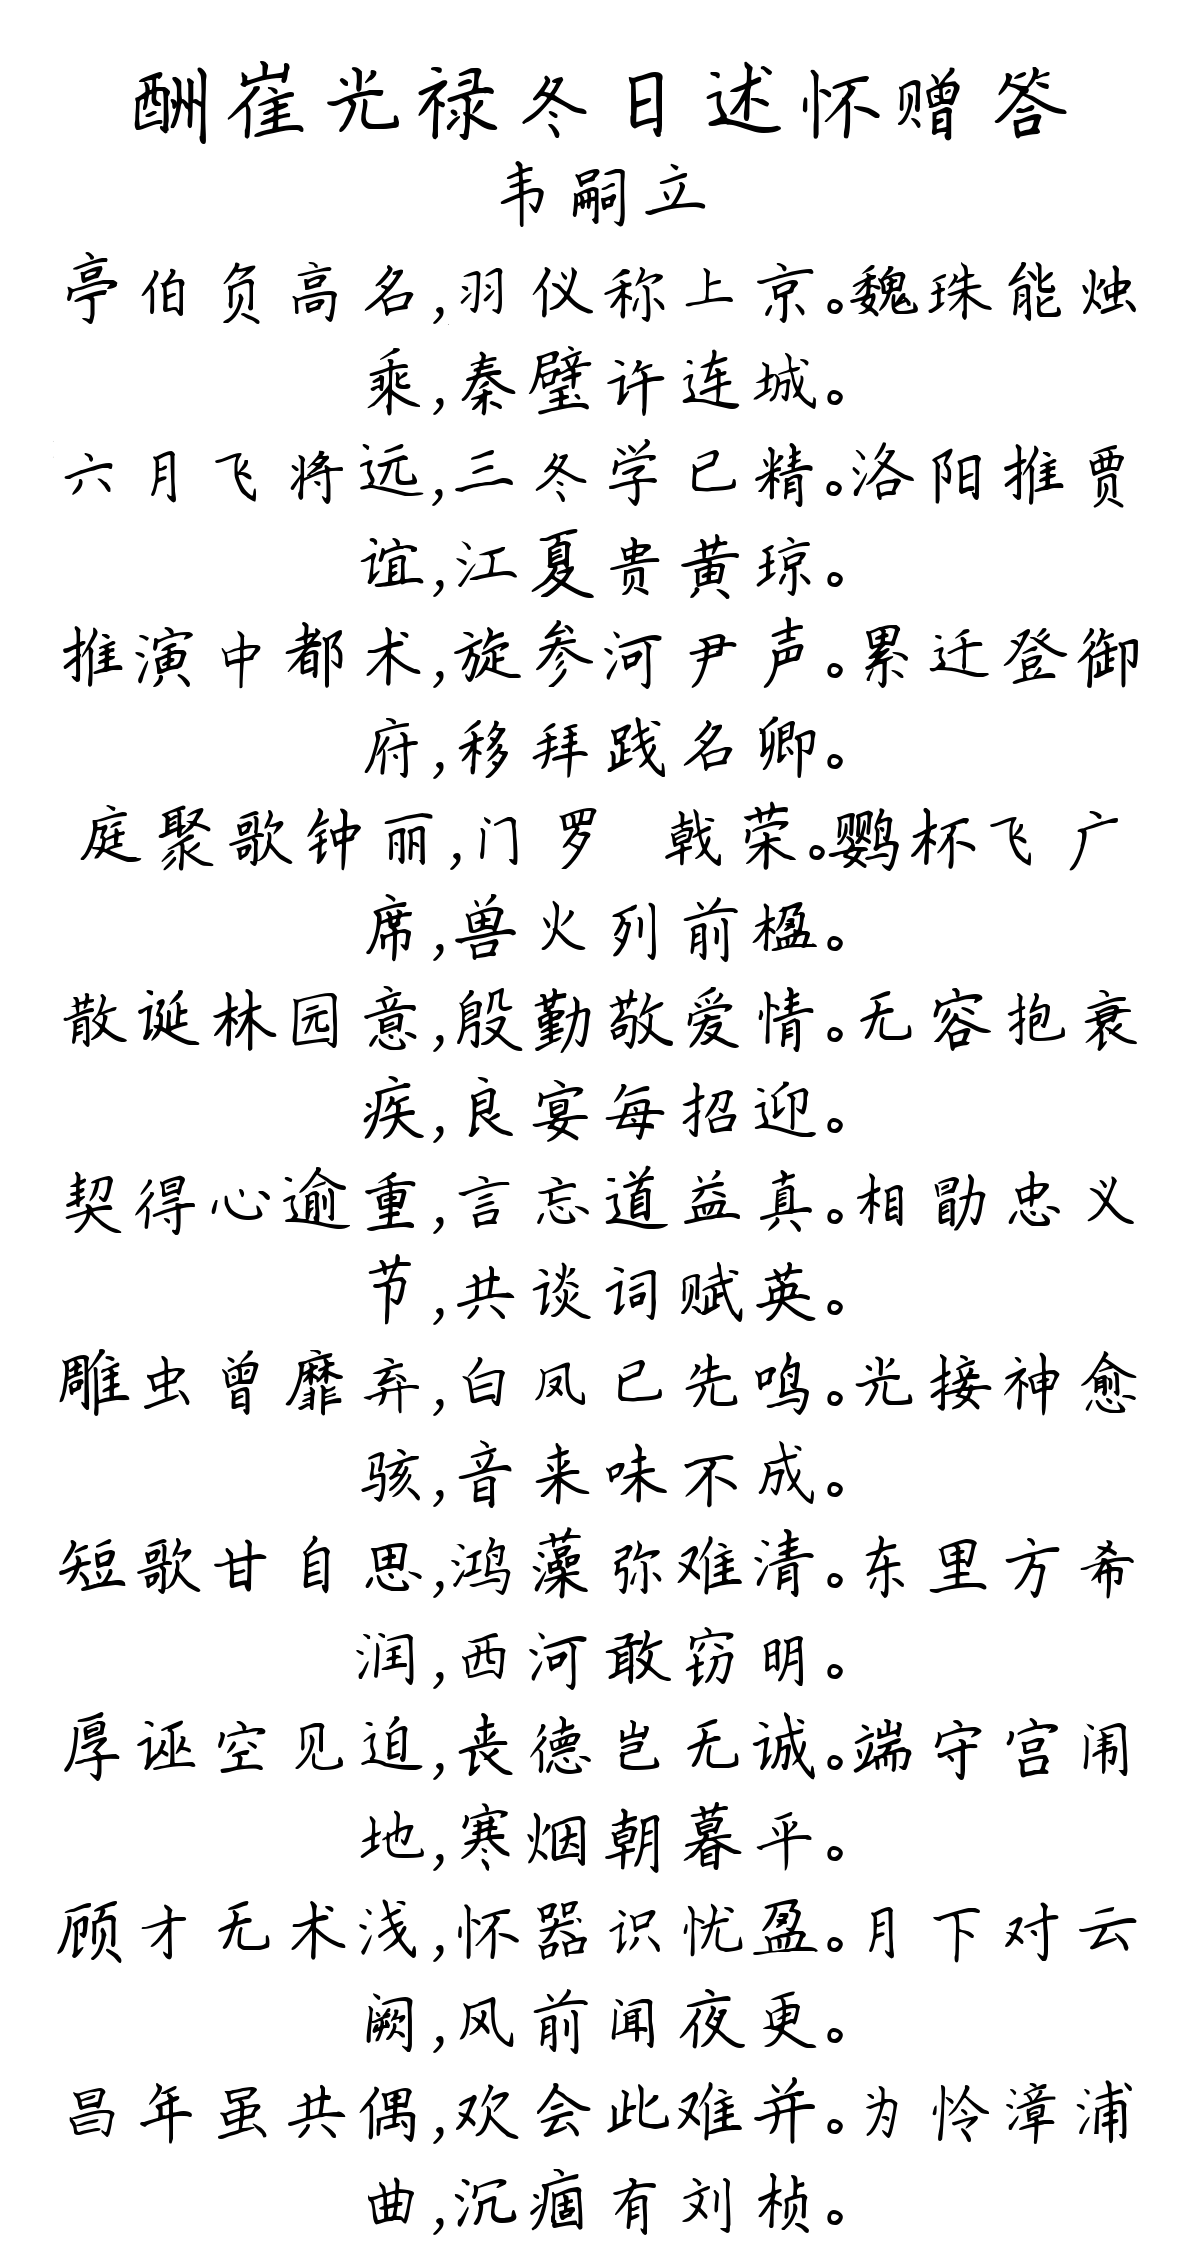 酬崔光禄冬日述怀赠答
韦嗣立
亭伯负高名,羽仪称上京。魏珠能烛
乘,秦璧许连城。
六月飞将远,三冬学已精。洛阳推贾
谊,江夏贵黄琼。
推演中都术,旋参河尹声。累迁登御
府,移拜践名卿。
庭聚歌钟丽,门罗 戟荣。鹦杯飞广
席,兽火列前楹。
散诞林园意,殷勤敬爱情。无容抱衰
疾,良宴每招迎。
契得心逾重,言忘道益真。相勖忠义
节,共谈词赋英。
雕虫曾靡弃,白凤已先鸣。光接神愈
骇,音来味不成。
短歌甘自思,鸿藻弥难清。东里方希
润,西河敢窃明。
厚诬空见迫,丧德岂无诚。端守宫闱
地,寒烟朝暮平。
顾才无术浅,怀器识忧盈。月下对云
阙,风前闻夜更。
昌年虽共偶,欢会此难并。为怜漳浦
曲,沉痼有刘桢。